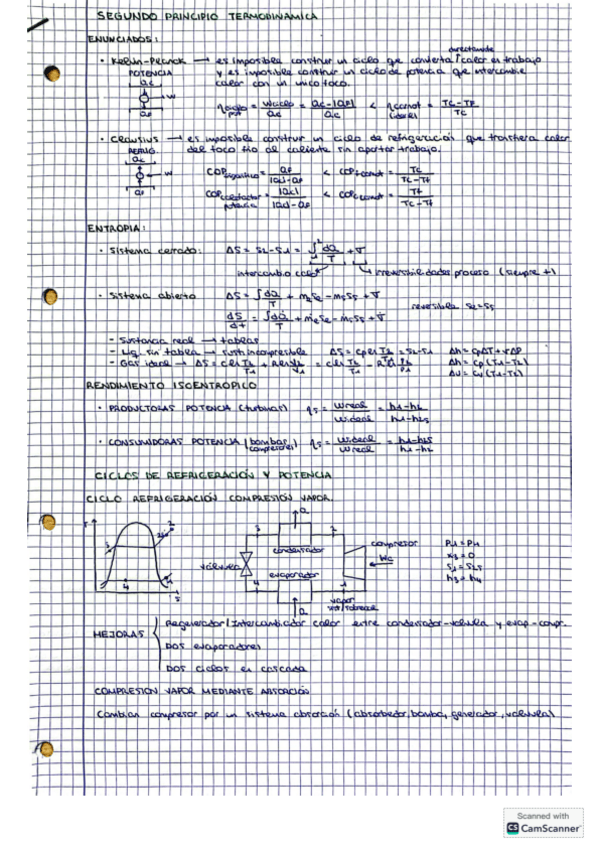 SEGUNDO PRINCIPIO TERMODINAMICA
ENUNCIADOS:
directamente
• Kelvin-Planck → es imposible construir un ciclo que convierta calor en trabajo
POTENCIA y es imposible construir un ciclo de potencia que intercambie
Qc calor con un unico foco.
W
QF
ηciclo pot = Wciclo/Qc = Qc-|QF|/Qc < ηcarnot = Tc-TF/Tc
• Clausius → es imposible construir un ciclo de refrigeración que transfiera calor
REFRIG. del foco frio al caliente sin aportar trabajo.
Qc
W
QF
COP = QF/|Qc|-QF < COPcarnot = Tc/Tc-Tf
COP = |Qc|/|Qc|-QF < COPcarnot = Tf/Tc-Tf
ENTROPIA:
• Sistema cerrado: ΔS = S2-S1 = ∫dQ/T + σ
intercambio calor irreversibilidades proceso (siempre +)
• Sistema abierto ΔS = ∫dQ/T + meSe - msSs + σ
reversible S2=S1
dS/dt = ∫dQ/T + meSe - msSs + σ
- Sustancia real → tablas
- Liq. sin tabla → sust incompresible ΔS = Cp ln T2/T1 = S2-S1 Δh = CpΔT + vΔP
- Gas ideal → ΔS = Δh = Cp (T1-T2)
ΔU = Cv (T1-T2)
RENDIMIENTO ISOENTROPICO
• PRODUCTORAS POTENCIA (turbinas) ηs = Wreal/Wideal = h1-h2/h1-h2s
• CONSUMIDORAS POTENCIA (bombas compresores) ηs = Wideal/Wreal = h1-h2s/h1-h2
CICLOS DE REFRIGERACIÓN Y POTENCIA
CICLO REFRIGERACIÓN COMPRESIÓN VAPOR.
T
3
2
4
1
s
Q
3
2
condensador
válvula
compresor
Wc
evaporador
4
1
Q
vapor
x3=0
S1=S2s
h3=h4
MEJORAS
Regenerador/Intercambiador calor entre condensador-valvula y evap-compr.
DOS evaporadores
DOS ciclos en cascada
COMPRESION VAPOR MEDIANTE ABSORCIÓN
Cambian compresor por un sistema absorción (absorbedor, bomba, generador, valvula)
Scanned with
CS CamScanner